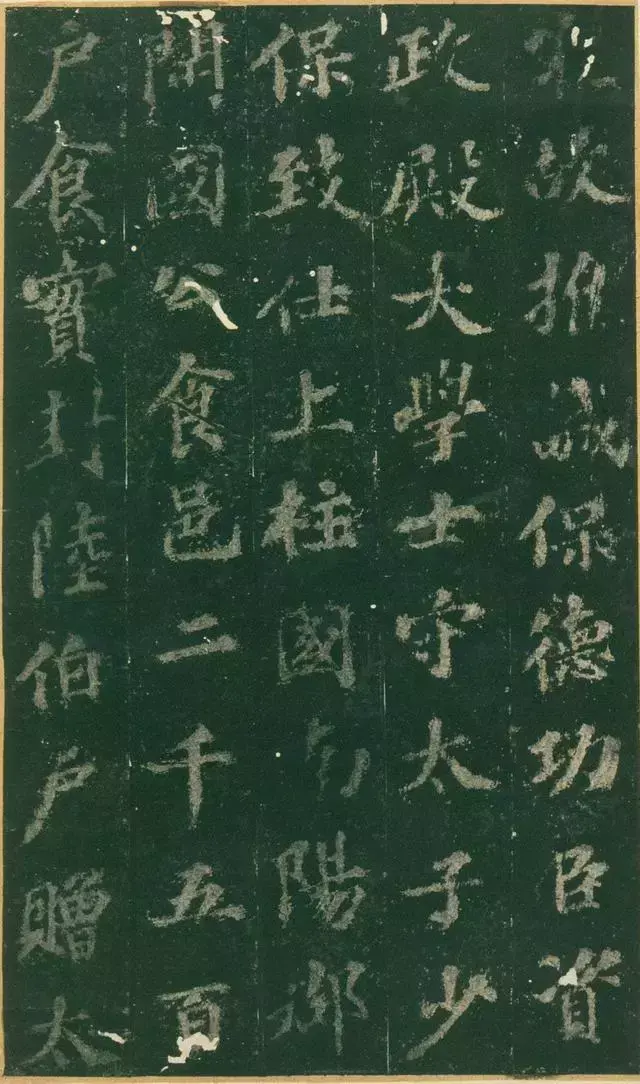 宋故推誠保德功臣資
政殿大學士守太子少
保致仕上柱國南陽郡
開國公食邑二千五百
户食實封陸伯户贈太